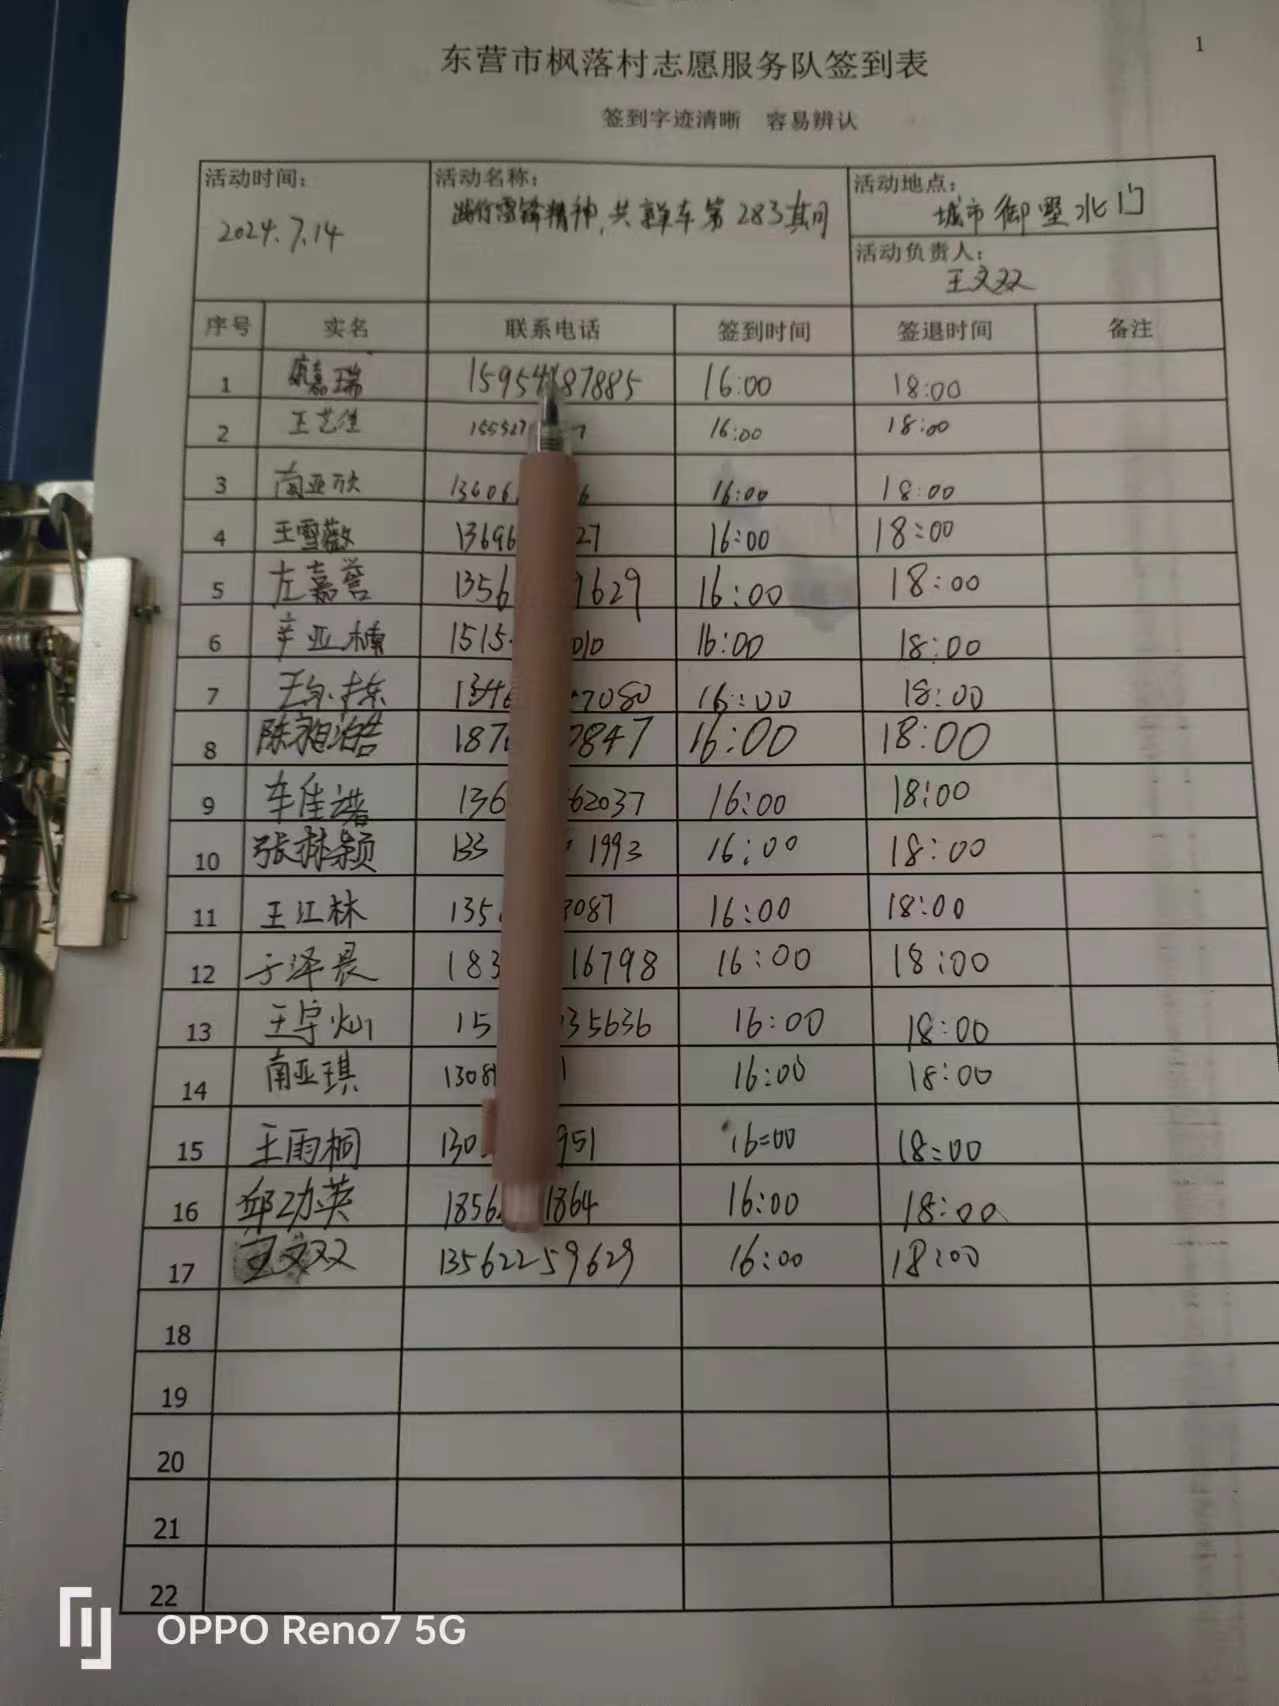 1
东营市枫落村志愿服务队签到表
签到字迹清晰 容易辨认
活动时间: 活动名称: 活动地点:
2024.7.14 践行雷锋精神,共享单车第283期 城市御墅北门
活动负责人:
王文双
序号 实名 联系电话 签到时间 签退时间 备注
1 嘉瑞 16:00 18:00
2 王艺佳 155527 7 16:00 18:00
3 南亚欣 13606 6 16:00 18:00
4 王雪薇 13696 27 16:00 18:00
5 左嘉誉 1356 9629 16:00 18:00
6 辛亚楠 1515 010 16:00 18:00
7 1346 7080 16:00 18:00
8 陈 浩 187 0847 16:00 18:00
9 车佳 136 62037 16:00 18:00
10 张林颖 133 1993 16:00 18:00
11 王江林 135 3087 16:00 18:00
12 于泽晨 183 16798 16:00 18:00
13 王宇灿 15 35636 16:00 18:00
14 南亚琪 1308 1 16:00 18:00
15 王雨桐 130 951 16:00 18:00
16 邱功英 1856 1864 16:00 18:00
17 王文双 13562259629 16:00 18:00
18
19
20
21
22
OPPO Reno7 5G